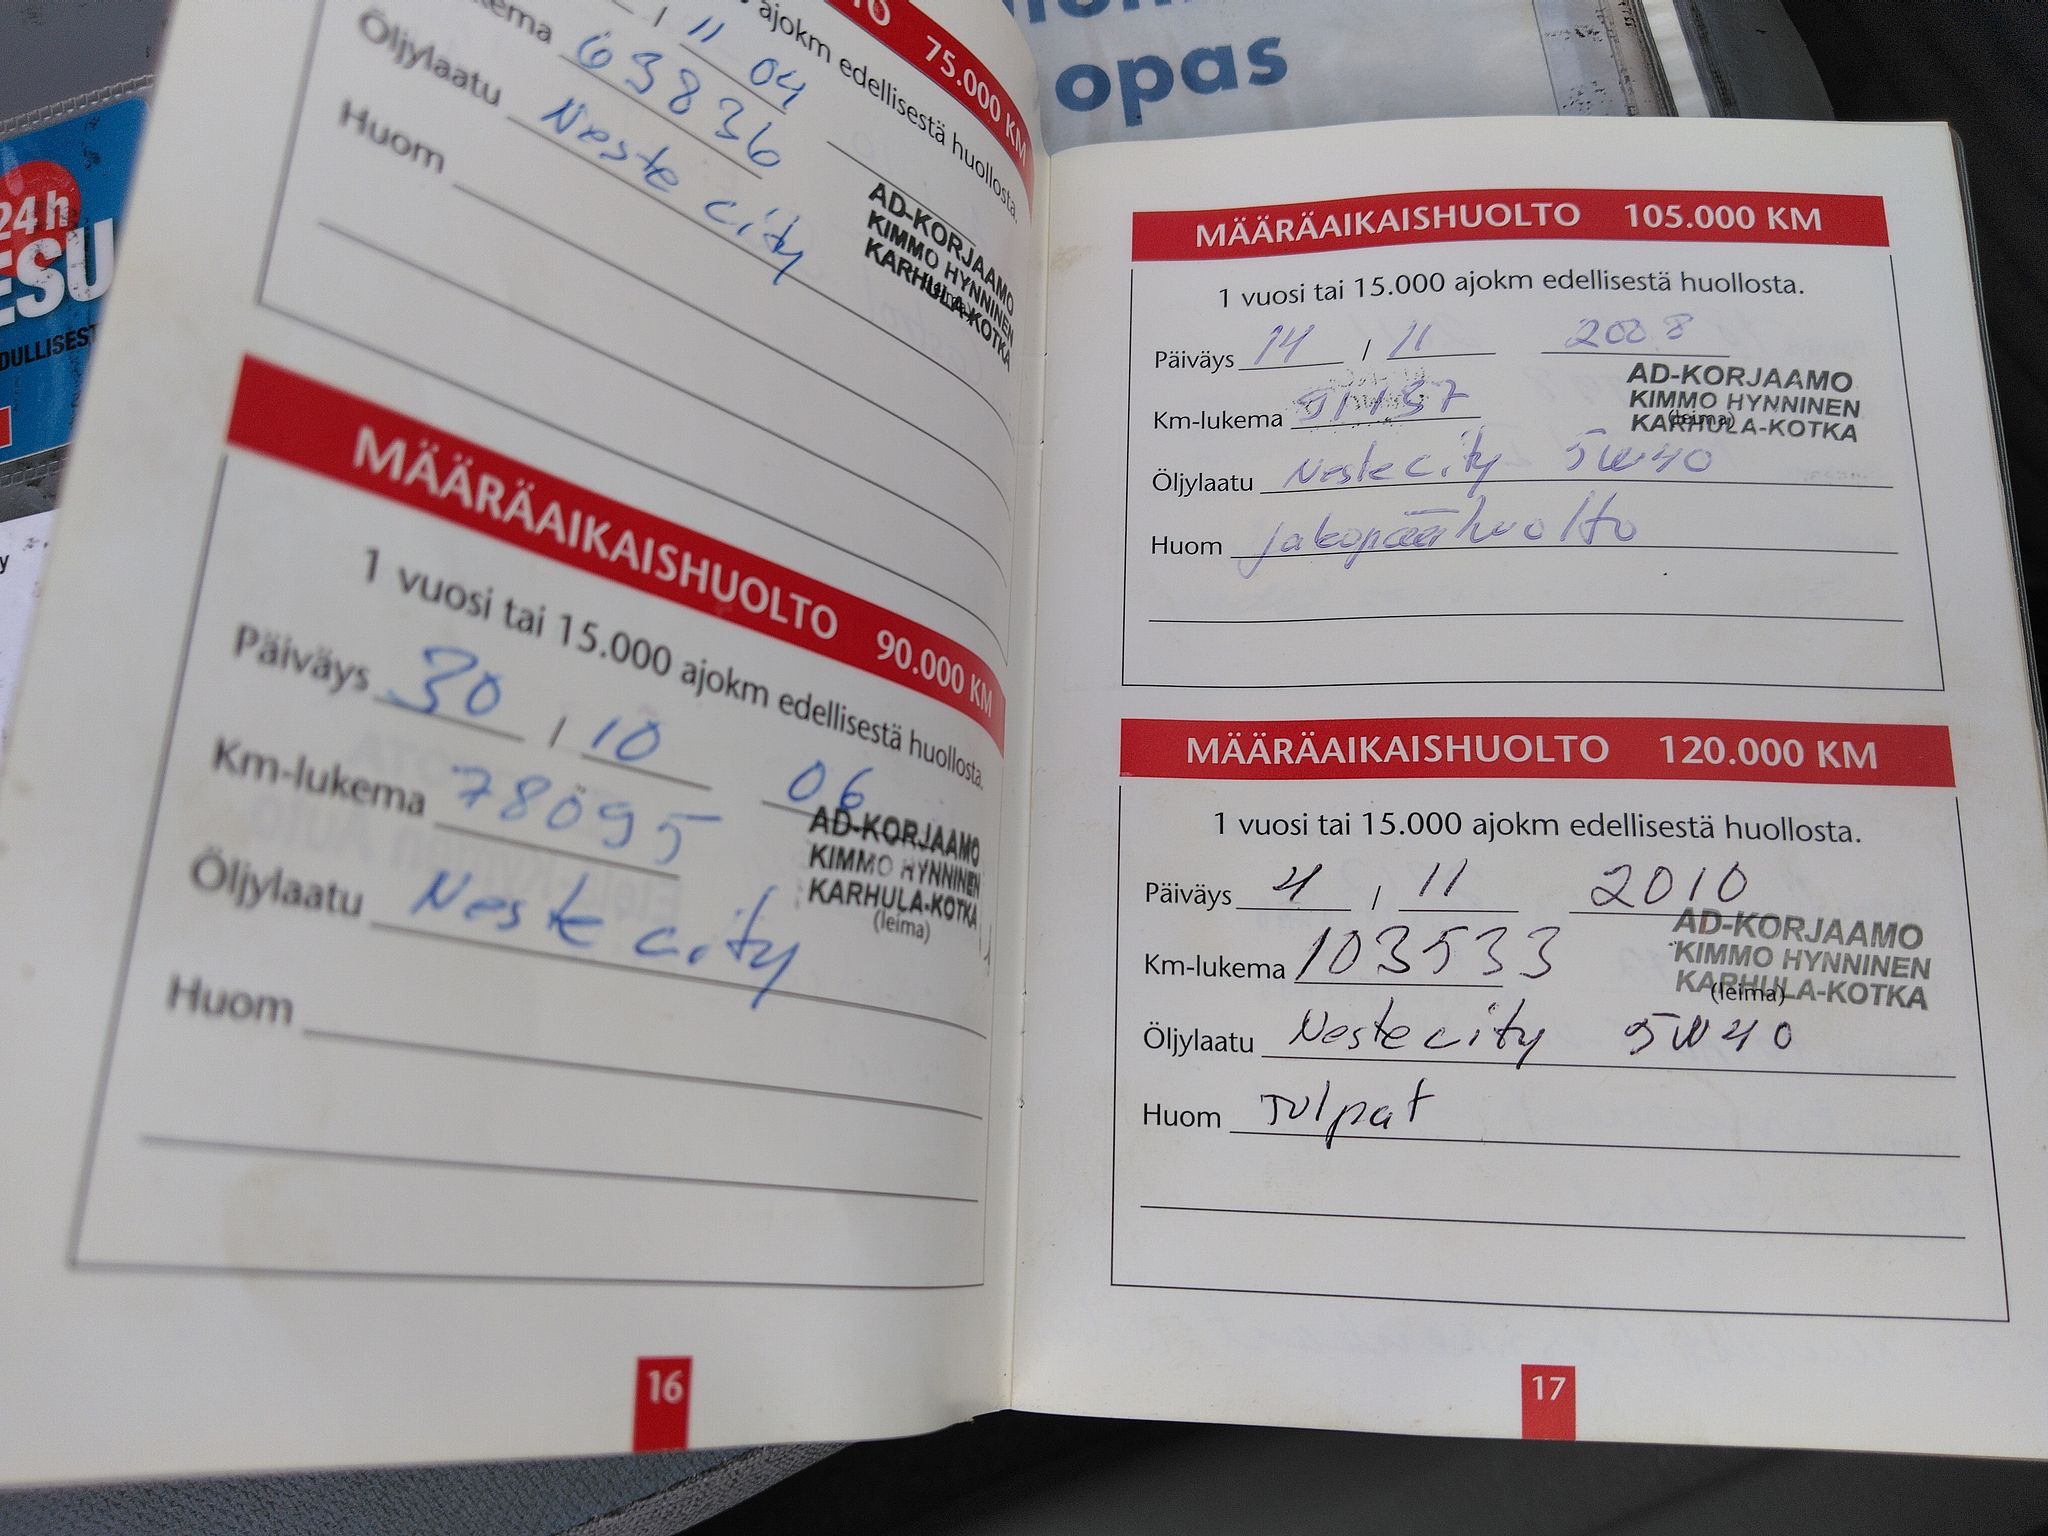 opas
24 h
ESU
DULLISEST
75.000 KM
ajokm edellisestä huollosta.
11 04
63836
Öljylaatu Neste city
Huom
AD-KORJAAMO
KIMMO HYNNINEN
KARHULA-KOTKA
MÄÄRÄAIKAISHUOLTO 90.000 KM
1 vuosi tai 15.000 ajokm edellisestä huollosta.
Päiväys 30 / 10 06
Km-lukema 78095
AD-KORJAAMO
KIMMO HYNNINEN
KARHULA-KOTKA
(leima)
Öljylaatu Neste city
Huom
16
MÄÄRÄAIKAISHUOLTO 105.000 KM
1 vuosi tai 15.000 ajokm edellisestä huollosta.
Päiväys 14 / 11 2008
Km-lukema 91187
AD-KORJAAMO
KIMMO HYNNINEN
(leima)
KARHULA-KOTKA
Öljylaatu Neste city 5W40
Huom jakopäähuolto
MÄÄRÄAIKAISHUOLTO 120.000 KM
1 vuosi tai 15.000 ajokm edellisestä huollosta.
Päiväys 4 / 11 2010
Km-lukema 103533
AD-KORJAAMO
KIMMO HYNNINEN
KARHULA-KOTKA
(leima)
Öljylaatu Neste city 5W40
Huom Tulpat
17